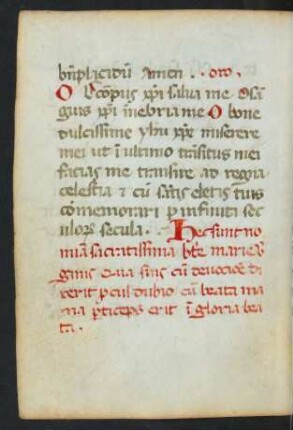 bn̄placitū Amen . . oro.
O Corpus xp̄i salua me O sā
guis xp̄i inebria me O bone
dulcissime yhu xp̄e miserere
mei ut ī ultimo trāsitus mei
facias me transire ad regna
celestia & cū sāctis electis tuis
cōmemorari p infiniti sec
ulor secula. Hec sunt no
mīa sacratissima bt̄e marie
ginis Q̄uia si⁊s cū deuocioē di
xerit p cul dubio cū beata ma
ria p̄ticeps erit ī gloria bea
ta .